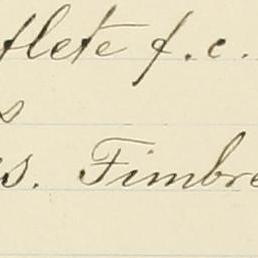 flete f. c.
s
s. Timbre